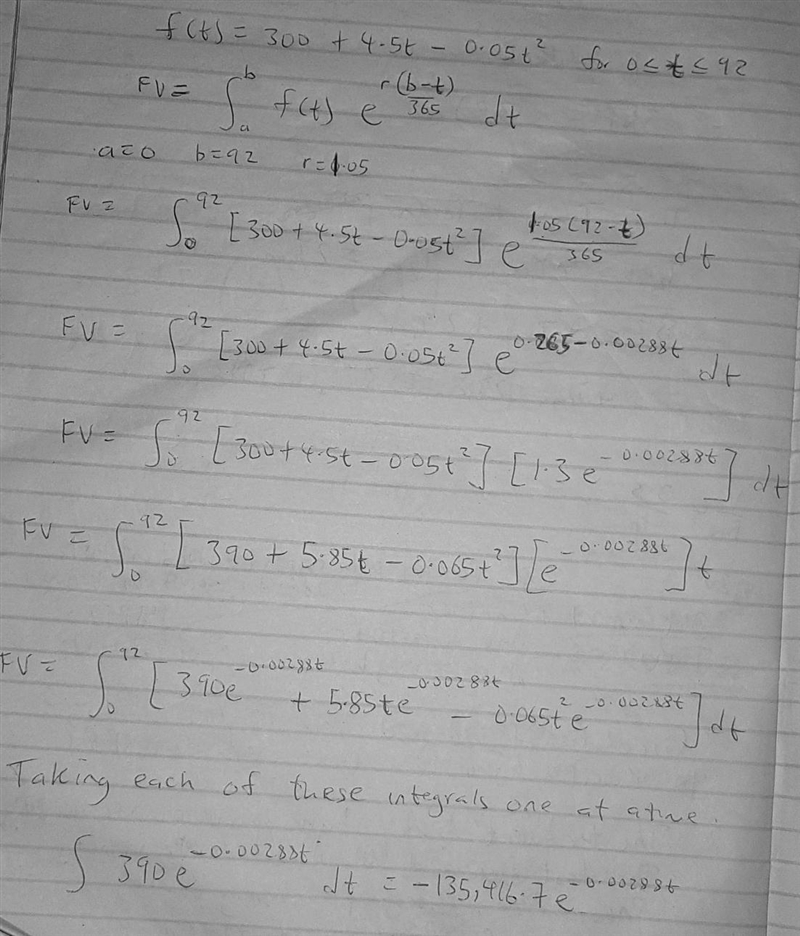 f(t) = 300 + 4.5t - 0.05t² for 0 ≤ t ≤ 92
FV = ∫_a^b f(t) e^{r(b-t)/365} dt
a=0 b=92 r=1.05
FV = ∫_0^92 [300 + 4.5t - 0.05t²] e^{1.05(92-t)/365} dt
FV = ∫_0^92 [300 + 4.5t - 0.05t²] e^{0.265-0.00288t} dt
FV = ∫_0^92 [300 + 4.5t - 0.05t²] [1.3 e^{-0.00288t}] dt
FV = ∫_0^92 [390 + 5.85t - 0.065t²] [e^{-0.00288t}] t
FV = ∫_0^92 [390e^{-0.00288t} + 5.85te^{-0.00288t} - 0.065t²e^{-0.00288t}] dt
Taking each of these integrals one at atime.
∫ 390e^{-0.00288t} dt = -135,416.7e^{-0.00288t}